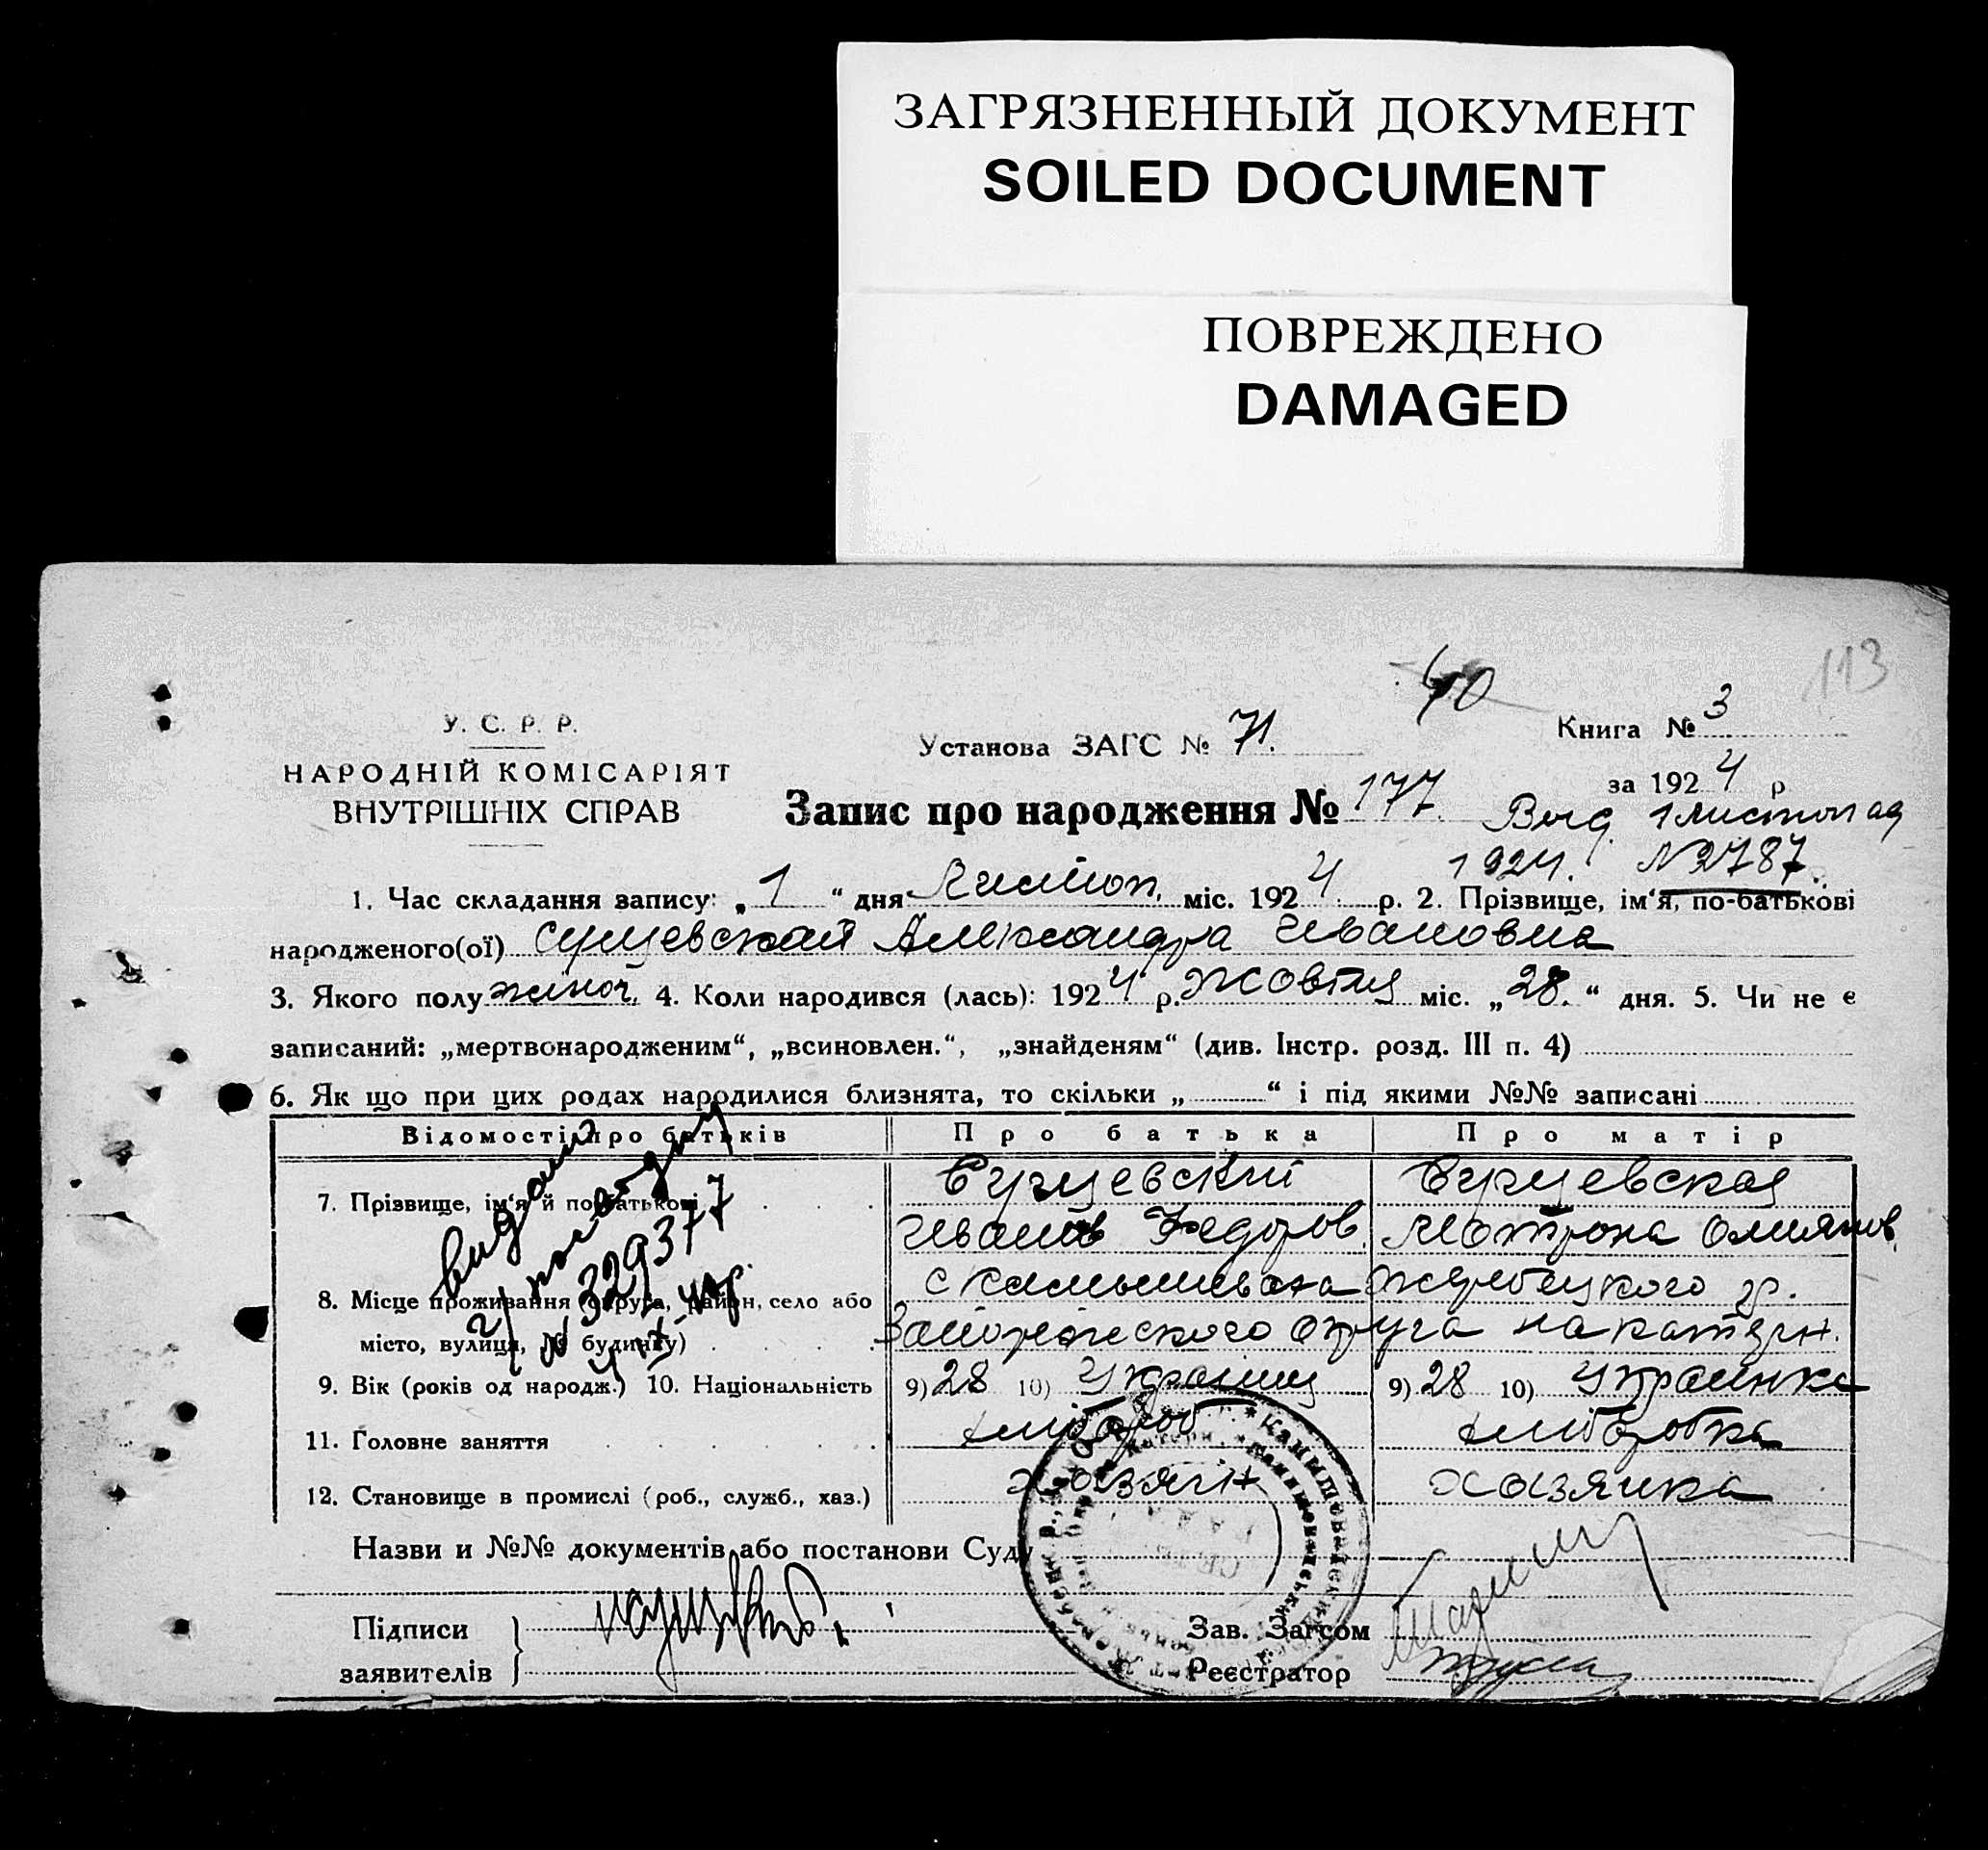 ЗАГРЯЗНЕННЫЙ ДОКУМЕНТ
SOILED DOCUMENT
ПОВРЕЖДЕНО
DAMAGED
113
40
У. С. Р. Р.
НАРОДНІЙ КОМІСАРІЯТ
ВНУТРІШНІХ СПРАВ
Установа ЗАГС № 71.
Книга № 3
за 1924 р
Запис про народження № 177.
Выд. 1 листопад
1924. № 2787.
1. Час складання запису: „ 1 “ дня Листоп. міс. 1924 р. 2. Прізвище, ім‘я, по-батькові
народженого(ої) Александра Ивановна
3. Якого полу жіноч. 4. Коли народився (лась): 1924 р. Жовтня міс. „28.“ дня. 5. Чи не є
записаний: „мертвонародженим“, „всиновлен.“, „знайденям“ (див. Інстр. розд. III п. 4)
6. Як що при цих родах народилися близнята, то скільки „ “ і під якими №№ записані
Відомості про батьків Про батька Про матір
7. Прізвище, ім‘я й по-батькові
Иван Федоров. Мотрона
8. Місце проживання (округа, район, село або
с Камышеваха Жеребецкого р.
місто, вулиця, № будинку)
Запорожского округа на катерн.
9. Вік (років од народж.) 10. Національність 9) 28 10) Украінец 9) 28 10) Украинка
11. Головне заняття хлібороб хлібаробка
12. Становище в промислі (роб., служб., хаз.) хозяин хозяика
видано
№ 329377
Назви и №№ документів або постанови Суду
Підписи
заявителів
Зав. Загсом
Реєстратор